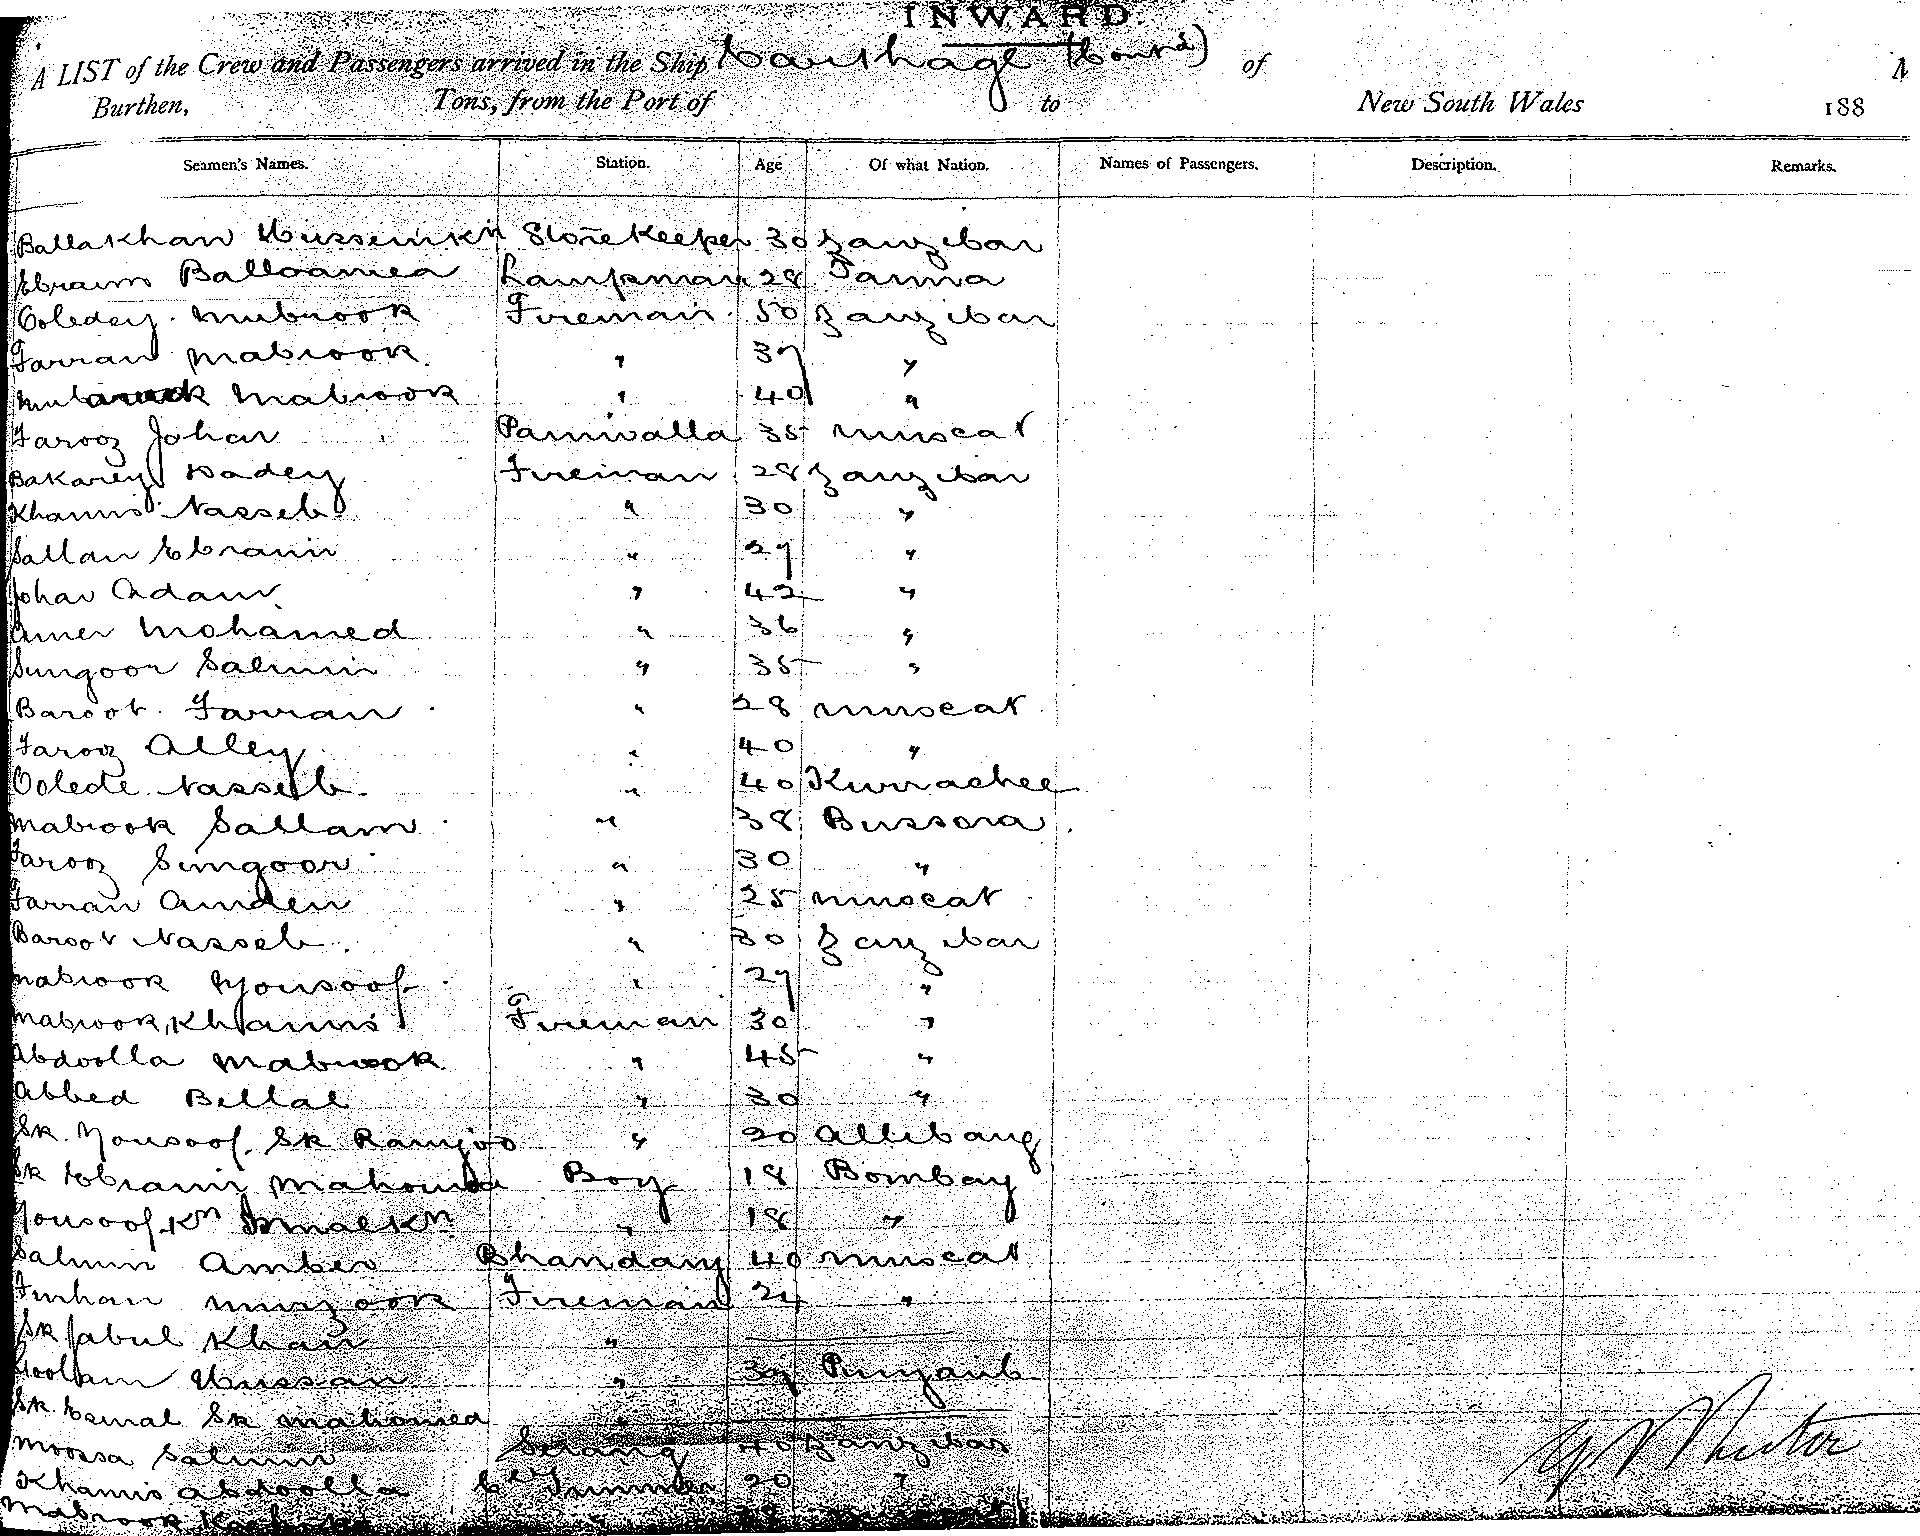 INWARD.
A LIST of the Crew and Passengers arrived in the Ship Carthage (Contd) of
Burthen, Tons, from the Port of to New South Wales 188
Seamen's Names. Station. Age Of what Nation. Names of Passengers. Description. Remarks.
Ballakhan Husseinkn Storekeeper 30 Zanzibar
Ebraim Balloamea Lampman 28 Tanna
Ooledey Mubrook Fireman 50 Zanzibar
Farran Mabrook " 37 "
Mubarrack Mabrook " 40 "
Farooz Johar Paniwalla 35 Muscat
Bakarey Dadey Fireman 28 Zanzibar
Khamis Nasseb " 30 "
Sallan Ebraim " 27 "
Johar Adam " 42 "
Amer Mohamed " 36 "
Sungoor Salmin " 35 "
Baroot Farran " 28 Muscat
Farooz Alley " 40 "
Oolede Nasseb " 40 Kurrachee
Mabrook Sallam " 38 Bussora
Farooz Sungoor " 30 "
Farran Amden " 25 Muscat
Baroot Nasseb " 30 Zanzibar
Mabrook Yousoof " 27 "
Mabrook Khamis Fireman 30 "
Abdoolla Mabrook " 45 "
Abbed Bellal " 30 "
Sk. Yousoof Sk Ramjoo " 20 Allibaug
Sk Ebraim Mahomed Boy 18 Bombay
Yousoof Kn Ismaelkn " 18 "
Salmin Amber Bhandary 40 Muscat
Furhan Murzook Fireman 24 "
Sk Jabul Khan "
Goolam Hussan " 39 Punjaub
Sk Esmal Sk Mahomed "
Moosa Salmin Serang 40 Zanzibar
Khamis Abdoolla Trimmer 20 "
Mabrook